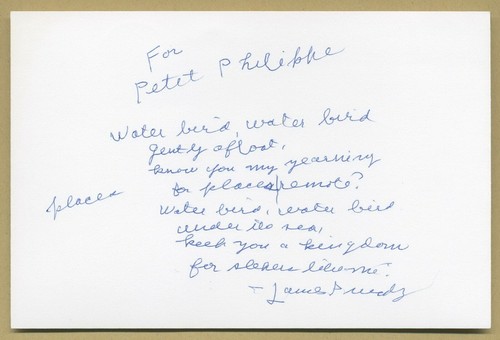 For
Petit Philippe
Water bird, water bird
gently afloat,
know you my yearning
for places remote?
places
Water bird, water bird
under the sea,
keep you a kingdom
for sleepers like me?
- James Purdy